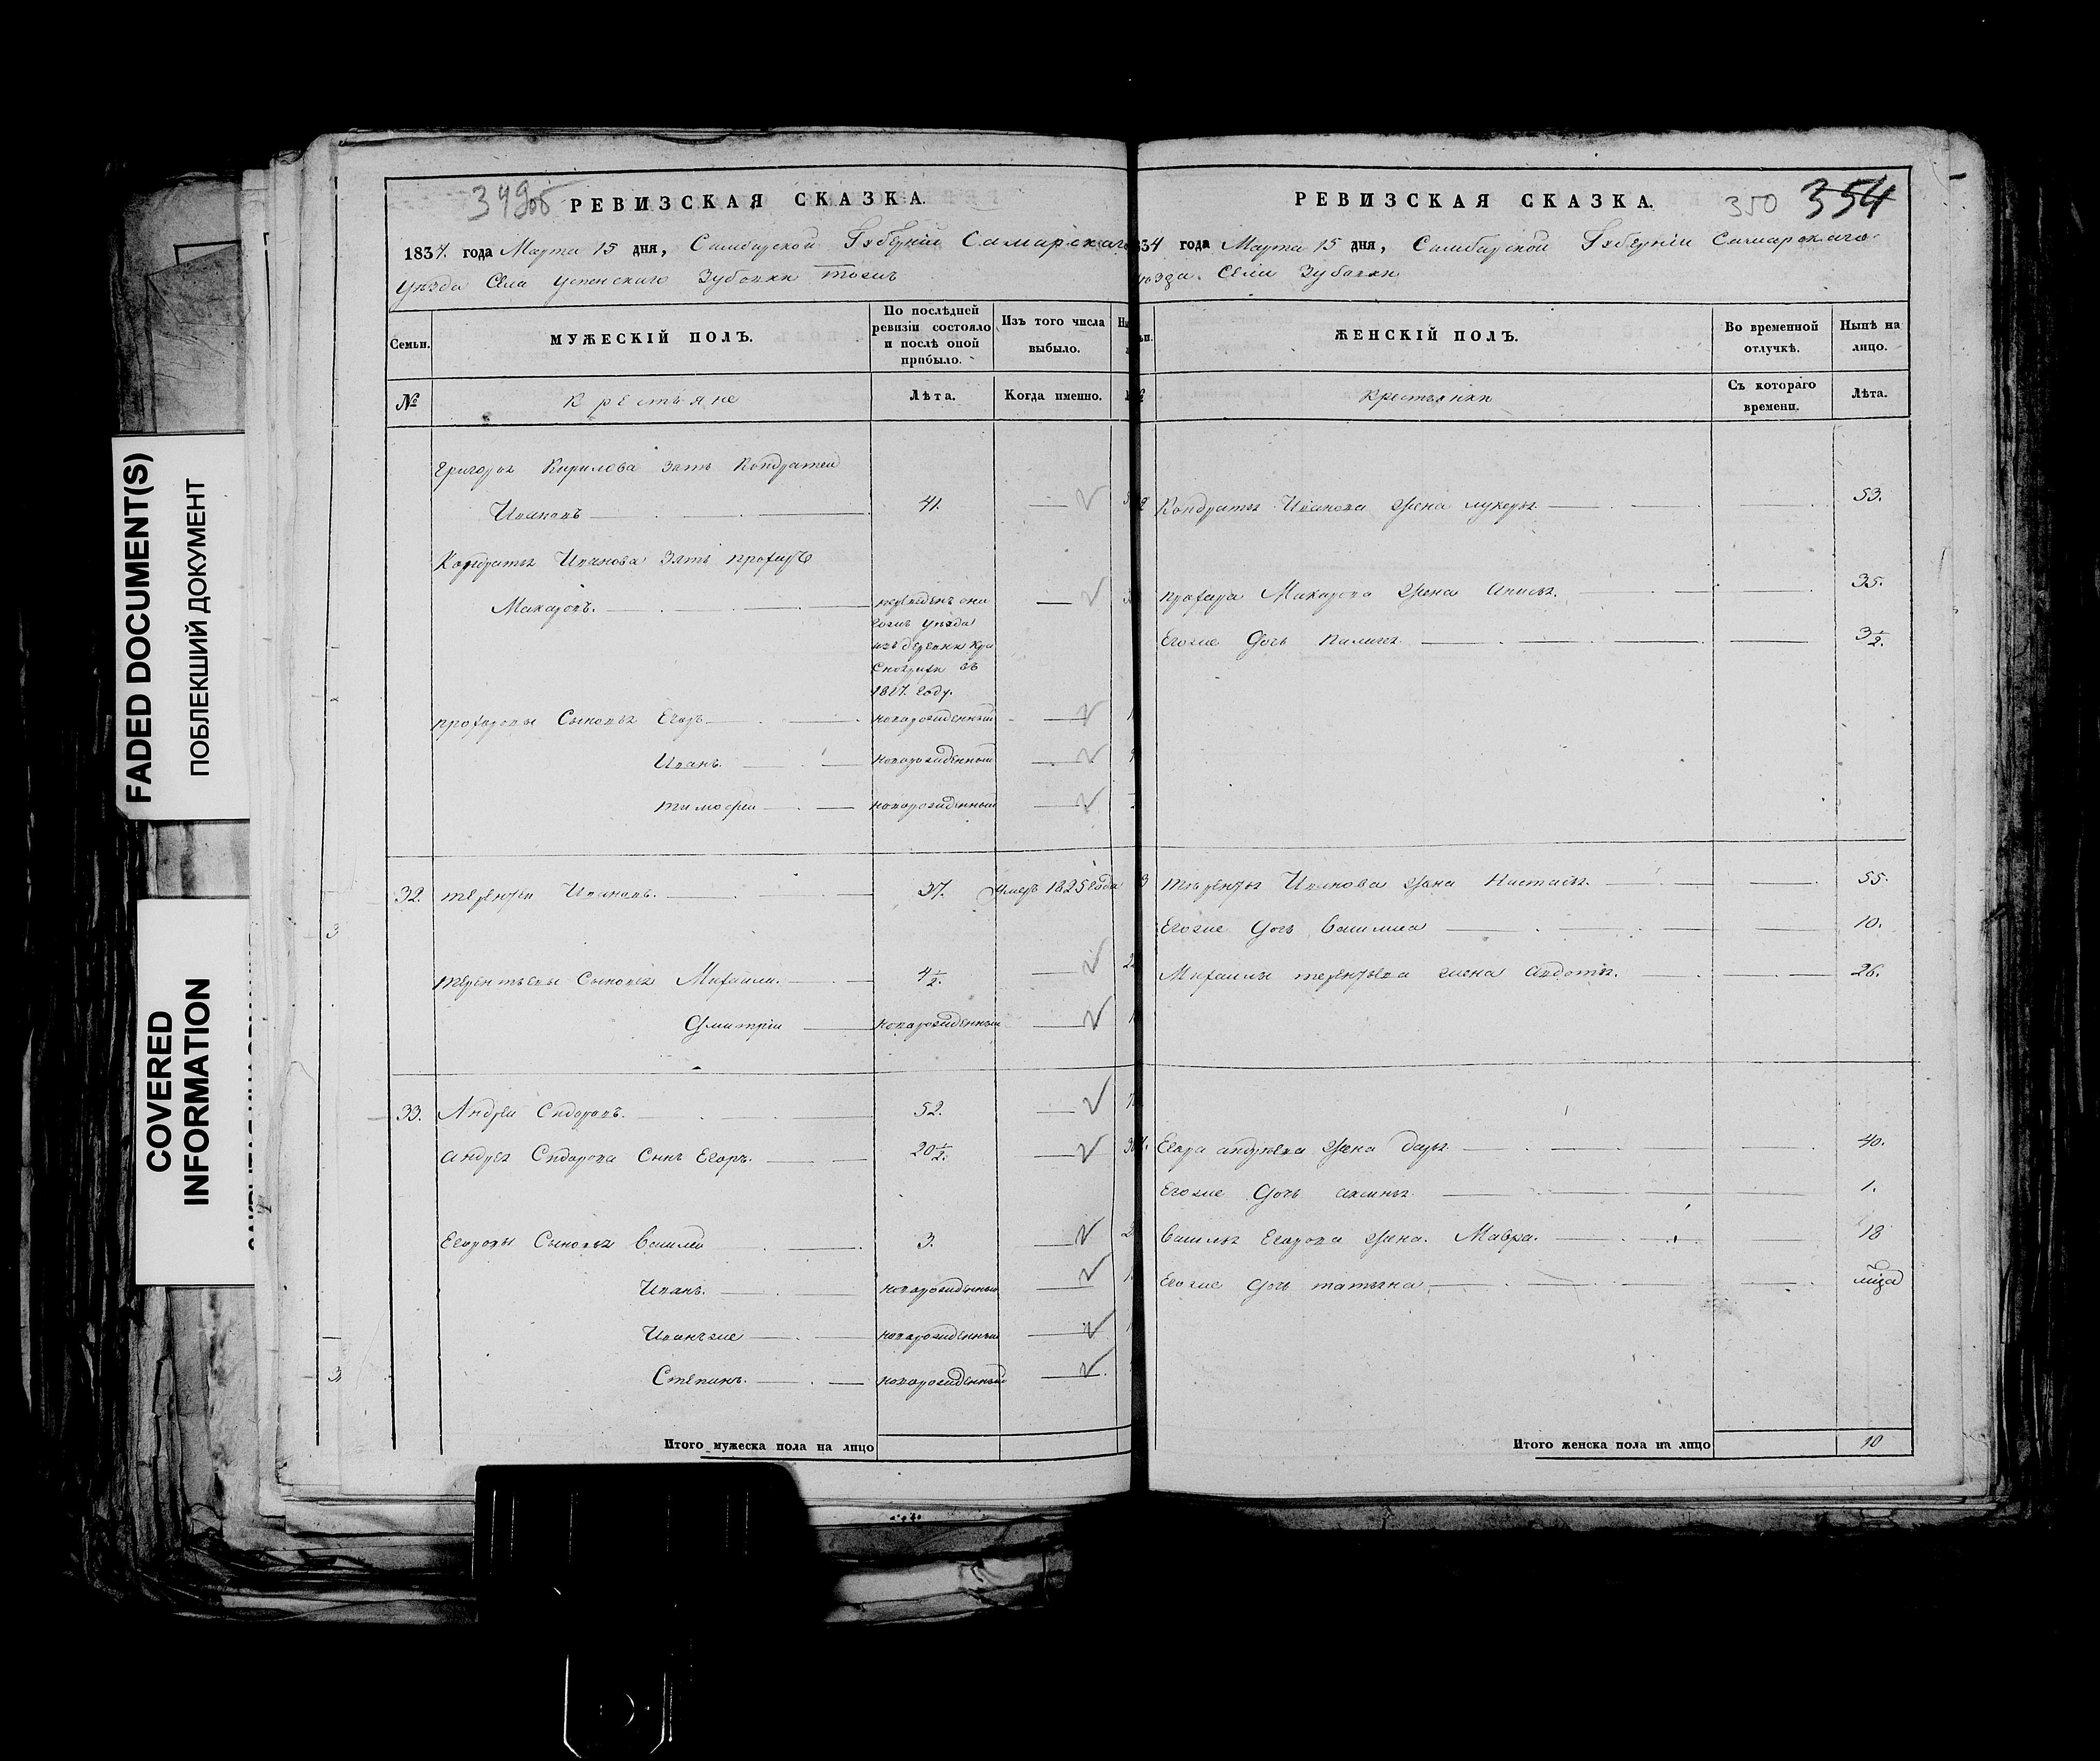 FADED DOCUMENT(S)
ПОБЛЕКШИЙ ДОКУМЕНТ
COVERED
INFORMATION
349об
РЕВИЗСКАЯ СКАЗКА.
1834. года Марта 15 дня, Симбирской Губерніи Самарскаго
уѣзда Села Успенскаго Зубовки тожъ
Семьи.
МУЖЕСКІЙ ПОЛЪ.
По послѣдней
ревизіи состояло
и послѣ оной
прибыло.
Изъ того числа
выбыло.
№
Крестьяне
Лѣта.
Когда именно.
Григорья Кирилова зять Кондратей
Ивановъ 41.
Кондратья Иванова зять прохаръ
Макаровъ.
уѣзда
изъ деревни
въ
году.
прохаровы Сыновья Егоръ новорожденный
Иванъ. новорожденный
тимофеи новорожденный
32. терентеи Ивановъ. 37. умеръ 1825 года
терентьевы Сыновья Михаила. 4 1/2.
Дмитріи новорожденный
33. Андреи Сидоровъ. 52.
андрея Сидорова Сынъ Егоръ. 20 1/2.
Егоровы Сыновья Василеи 3.
Иванъ. новорожденный
Иванъже новорожденный
Степанъ. новорожденный
Итого мужеска пола на лицо
РЕВИЗСКАЯ СКАЗКА.
350 354
34 года Марта 15 дня, Симбирской Губерніи Самарскаго
уѣзда. Села Зубовки
ЖЕНСКІЙ ПОЛЪ.
Во временной
отлучкѣ.
Нынѣ на
лицо.
Крестьянки
Съ котораго
времени.
Лѣта.
Кондратья Иванова жена лукерья 53.
прохара Макарова жена анисья. 35.
Егоже дочь 3 1/2.
терентья Иванова жена Настасья. 55.
Егоже дочь Василиса 10.
Михаилы терентьева жена авдотья. 26.
Егора андреева жена дарья 40.
Егоже дочь аксинья 1.
Василья Егорова жена. Мавра. 18
Егоже дочь татьяна
Итого женска пола на лицо 10